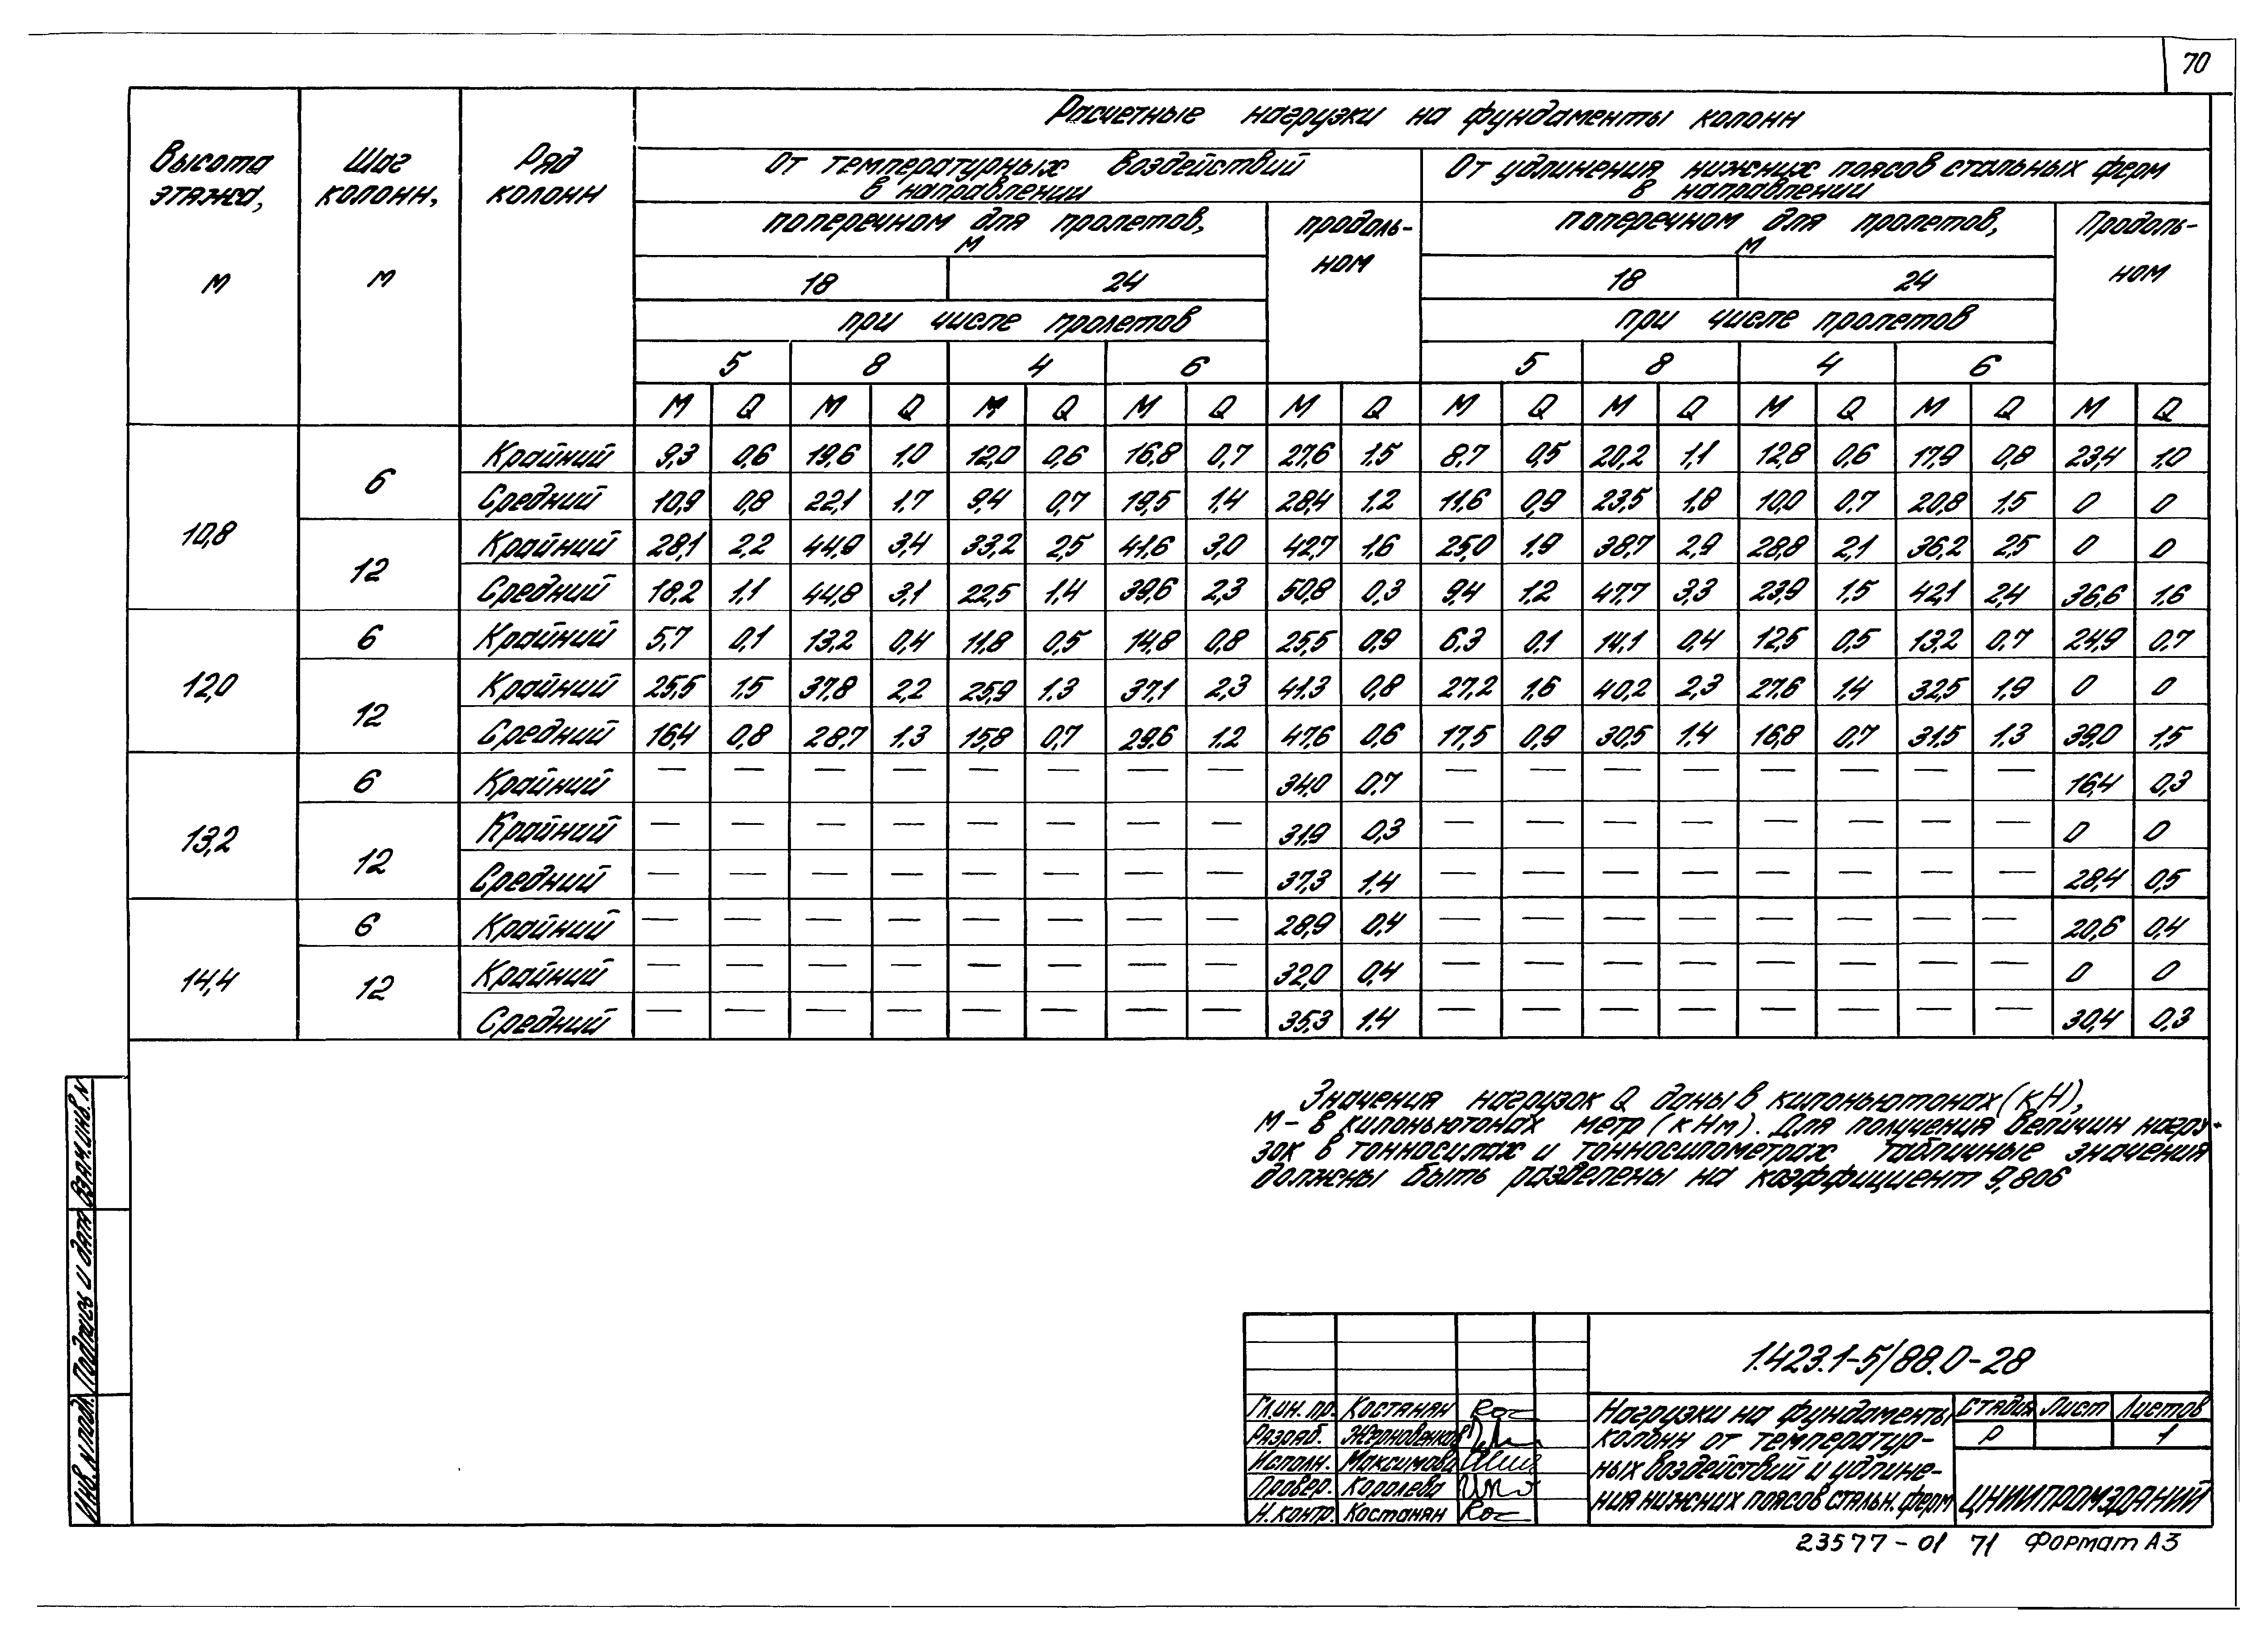 70
Расчетные нагрузки на фундаменты колонн
Высота этажа, м
Шаг колонн, м
Ряд колонн
От температурных воздействий в направлении
От удлинения нижних поясов стальных ферм в направлении
поперечном для пролетов, м
продольном
поперечном для пролетов, м
Продольном
18 24 18 24
при числе пролетов при числе пролетов
5 8 4 6 5 8 4 6
М Q М Q М Q М Q М Q М Q М Q М Q М Q М Q
10,8 6 Крайний 9,3 0,6 19,6 1,0 12,0 0,6 16,8 0,7 27,6 1,5 8,7 0,5 20,2 1,1 12,8 0,6 17,9 0,8 23,4 1,0
Средний 10,9 0,8 22,1 1,7 9,4 0,7 19,5 1,4 28,4 1,2 11,6 0,9 23,5 1,8 10,0 0,7 20,8 1,5 0 0
12 Крайний 28,1 2,2 44,9 3,4 33,2 2,5 41,6 3,0 42,7 1,6 25,0 1,9 38,7 2,9 28,8 2,1 36,2 2,5 0 0
Средний 18,2 1,1 44,8 3,1 22,5 1,4 39,6 2,3 50,8 0,3 9,4 1,2 47,7 3,3 23,9 1,5 42,1 2,4 36,6 1,6
12,0 6 Крайний 5,7 0,1 13,2 0,4 11,8 0,5 14,8 0,8 25,5 0,9 6,3 0,1 14,1 0,4 12,5 0,5 13,2 0,7 24,9 0,7
12 Крайний 25,5 1,5 37,8 2,2 25,9 1,3 37,1 2,3 41,3 0,8 27,2 1,6 40,2 2,3 27,6 1,4 32,5 1,9 0 0
Средний 16,4 0,8 28,7 1,3 15,8 0,7 29,6 1,2 47,6 0,6 17,5 0,9 30,5 1,4 16,8 0,7 31,5 1,3 39,0 1,5
13,2 6 Крайний — — — — — — — — 34,0 0,7 — — — — — — — — 16,4 0,3
12 Крайний — — — — — — — — 31,9 0,3 — — — — — — — — 0 0
Средний — — — — — — — — 37,3 1,4 — — — — — — — — 28,4 0,5
14,4 6 Крайний — — — — — — — — 28,9 0,4 — — — — — — — — 20,6 0,4
12 Крайний — — — — — — — — 32,0 0,4 — — — — — — — — 0 0
Средний — — — — — — — — 35,3 1,4 — — — — — — — — 30,4 0,3
Значения нагрузок Q даны в килоньютонах (кН),
М – в килоньютонах метр (кНм). Для получения величин нагру-
зок в тонносилах и тонносилометрах табличные значения
должны быть разделены на коэффициент 9,806
Взам. инв. N
Подпись и дата
Инв. N подл.
1.423.1-5/88.0-28
Гл. ин. пр. Костанян
Разраб.
Исполн. Максимова
Провер. Королева
Н. контр. Костанян
Нагрузки на фундаменты
колонн от температур-
ных воздействий и удлине-
ния нижних поясов стальн. ферм
Стадия Лист Листов
Р 1
ЦНИИПРОМЗДАНИЙ
23577-01 71 Формат А3